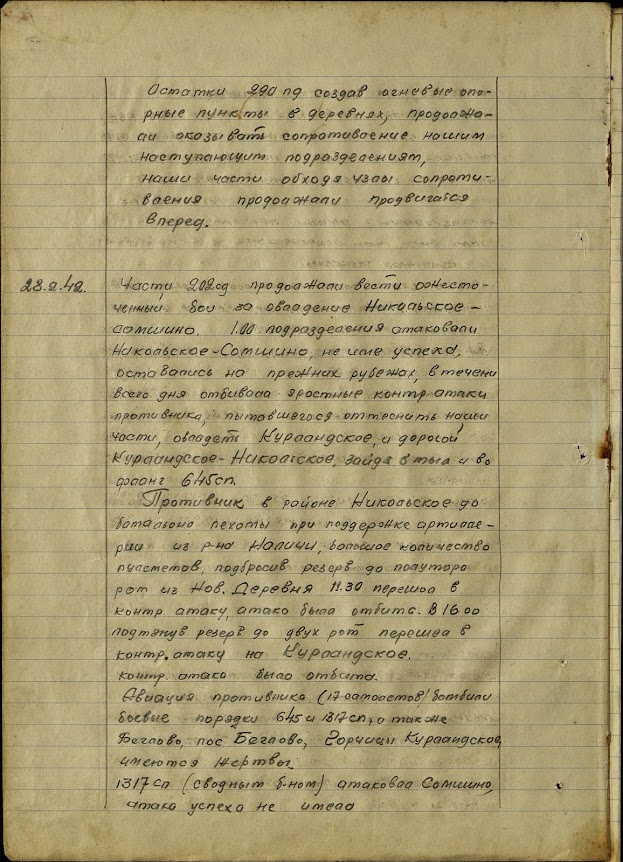 Остатки 290 пд создав огневые опо-
рные пункты в деревнях, продолжа-
ли оказывать сопротивление нашим
наступающим подразделениям,
наши части обходя узлы сопроти-
вления продолжали продвигатся
вперед.
28.2.42. Части 202сд продолжали вести ожесто-
ченный бои за овладение Никольское-
Сомшино. 1.00 подразделения атаковали
Никольское-Сомшино, не име успеха,
оставались на прежних рубежах, в течени
всего дня отбивала яростные контр атаки
противника, пытовшегося оттеснить наши
части, овладеть Курландское, и дорогой
Курландское-Никольское, зайдя в тыл и во
фланг 645сп.
Противник в районе Никольское до
батальона пехоты при поддержке артилле-
рии из р-на Налючи, большое количество
пулеметов, подбросив резерв до полуторо
рот из Нов. Деревня 11.30 перешол в
контр. атаку, атака была отбита. В 16 00
подтянув резерв до двух рот перешла в
контр. атаку на Курландское.
контр. атака была отбита.
Авиация противника (17 самолетов) бомбили
боевые порядки 645 и 1317 сп, а также
Беглово, пос Беглово, Горчицы Курландское,
имеются жертвы.
1317 сп (сводным б-ном) атаковал Сомшино,
атака успеха не имела